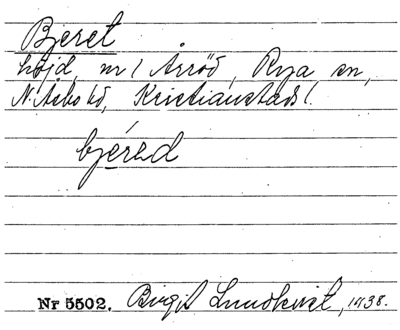 Bjeret
höjd, nr 1 Årröd, Rya sn,
N. Åsbo hd, Kristianstads l.
bjéred
Nr 5502. Birgit Lundkvist, 1938.